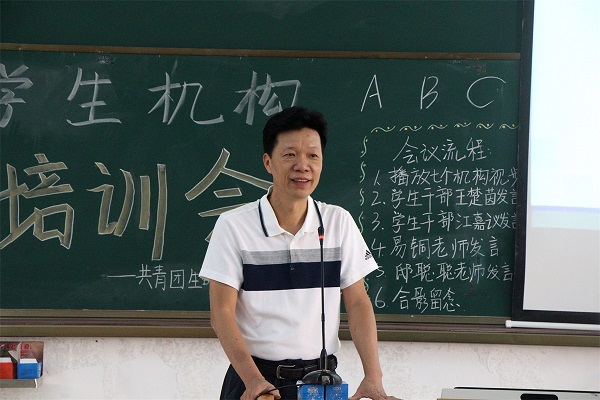 学生机构 ABC
培训会
——共青团生
会议流程:
1. 播放七个机构视
2. 学生干部王楚茵发言
3. 学生干部江嘉议发言
4. 易铜老师发言
5. 邸聪聪老师发言
6. 合影留念
adidas